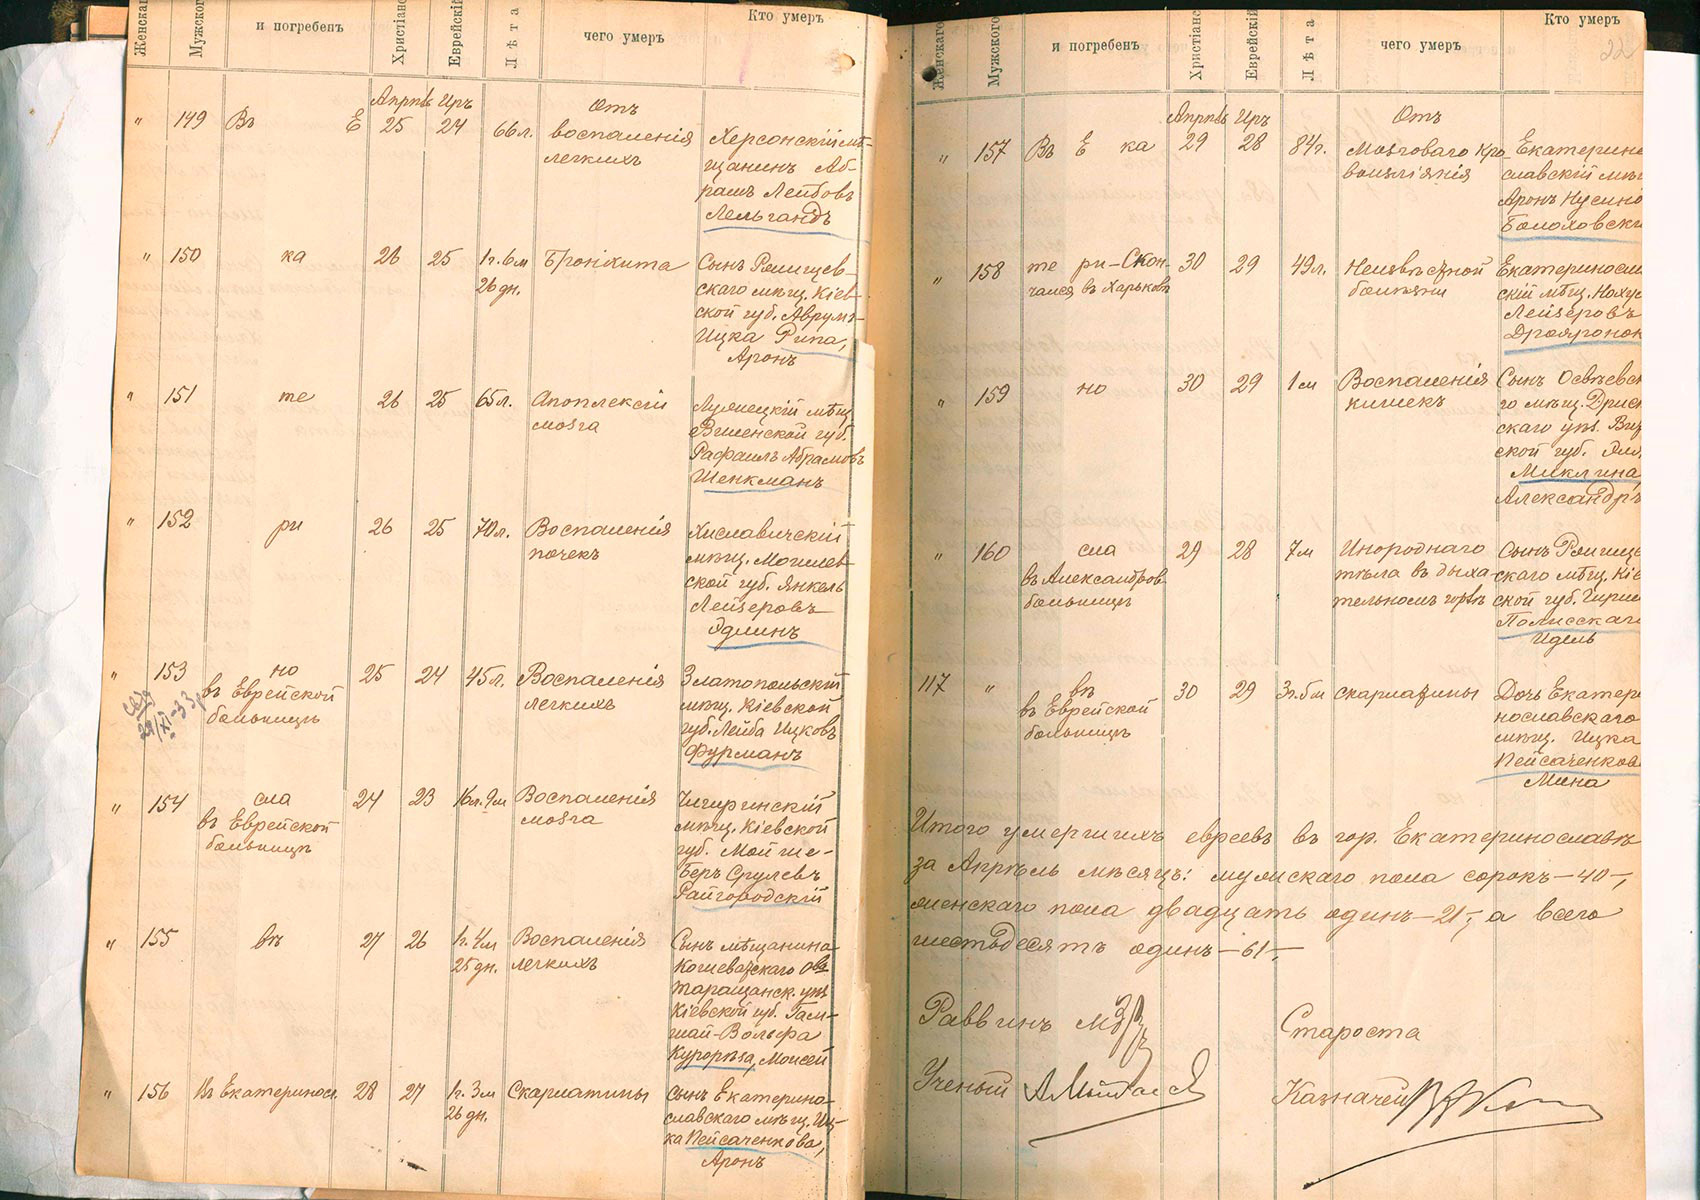 Женскаго
Мужского
и погребенъ
Христіанс
Еврейскій
Лѣта
чего умеръ
Кто умеръ
Апрѣль Ияръ
Отъ
" 149 Въ Е 25 24 66 л. воспаленія
легкихъ
Херсонскій мѣ-
щанинъ Аб-
рамъ Лейбовъ
Лельгандъ
" 150 ка 26 25 1 г. 6 м
26 дн.
Бронхита
Сынъ Ромигцев-
скаго мѣщ. Кіев-
ской губ. Аврумъ-
Ицка Рипа,
Аронъ
" 151 те 26 25 65 л. Апоплексіи
мозга
мѣщ.
Виленской губ.
Рафаилъ Абрамовъ
Шенкманъ
" 152 ри 26 25 70 л. Воспаленія
почекъ
Хиславичскій
мѣщ. Могилев-
ской губ. Янкель
Лейзеровъ
Эдлинъ
" 153 но
въ Еврейской
больницѣ
25 24 45 л. Воспаленія
легкихъ
Златопольскій
мѣщ. Кіевской
губ. Лейба Ицковъ
Фурманъ
" 154 сла
въ Еврейской
больницѣ
24 23 16 л. 9 м Воспаленія
мозга
Чигиринскій
мѣщ. Кіевской
губ. Мойше-
Беръ Срулевъ
Райгородскій
" 155 въ 27 26 1 г. 4 м
25 дн.
Воспаленія
легкихъ
Сынъ мѣщанина
Кошеватскаго Об.
Таращанск. уѣз.
Кіевской губ. Гам-
шай-Вольфа
Курорѣза, Моисей
" 156 Въ Екатеринос. 28 27 1 г. 3 м
26 дн.
Скарлатины
Сынъ Екатерино-
славскаго мѣщ. Иц-
ка Пейсаченкова,
Аронъ
Женскаго
Мужского
и погребенъ
Христіанс
Еврейскій
Лѣта
чего умеръ
Кто умеръ
22
Апрѣль Ияръ
Отъ
" 157 Въ Е ка 29 28 84 г. Мозговаго кро-
воизліянія
Екатерино
славскій мѣщ
Аронъ Нусино
Болоховски
" 158 те ри-Скон-
чался въ Харьковѣ
30 29 49 л. Неизвѣстной
болѣзни
Екатериносла
скій мѣщ. Нохум
Лейзеровъ
" 159 но 30 29 1 м Воспаленія
кишекъ
Сынъ Освѣевск
го мѣщ. Дрис
скаго уѣз. Вит
ской губ. Эля
Миклина,
Александръ
" 160 сла
въ Александров.
больницѣ
29 28 7 м Инороднаго
тѣла въ дыха-
тельномъ горлѣ
Сынъ Ромигце
скаго мѣщ. Кіе
ской губ. Гирш
Полисскаго
Идель
117 " въ
въ Еврейской
больницѣ
30 29 3 г. 5 м скарлатины
Дочь Екатери
нославскаго
мѣщ. Ицка
Пейсаченкова
Мина
Итого умершихъ евреевъ въ гор. Екатеринославѣ
за Апрѣль мѣсяцъ: мужскаго пола сорокъ - 40 -,
женскаго пола двадцать одинъ - 21 -, а всего
шестьдесятъ одинъ - 61 -
Раввинъ
Староста
Ученый
Казначей